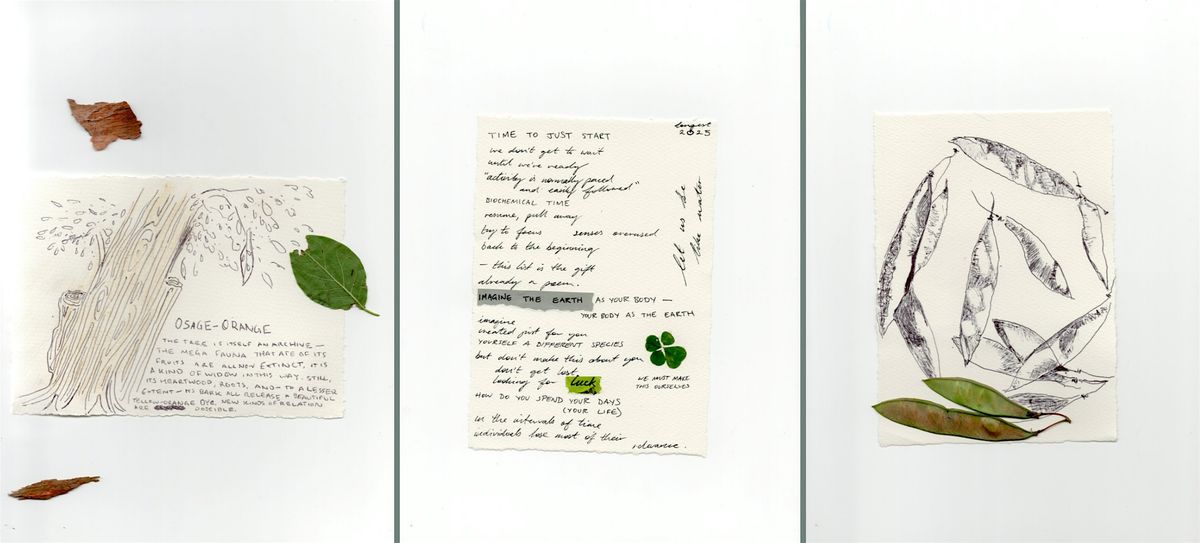 OSAGE-ORANGE
THE TREE IS ITSELF AN ARCHIVE —
THE MEGA FAUNA THAT ATE OF ITS
FRUITS ARE ALL NOW EXTINCT, IT IS
A KIND OF WIDOW IN THIS WAY. STILL,
ITS HEARTWOOD, ROOTS, AND — TO A LESSER
EXTENT — ITS BARK ALL RELEASE A BEAUTIFUL
YELLOW-ORANGE DYE. NEW KINDS OF RELATION
ARE POSSIBLE.
2025
TIME TO JUST START
we don't get to wait
until we're ready
"activity is normally paced
and easily followed"
BIOCHEMICAL TIME
resume, pull away
try to focus senses overused
back to the beginning
— this list is the gift
already a poem.
let us be
like water
IMAGINE THE EARTH AS YOUR BODY —
YOUR BODY AS THE EARTH
imagine
created just for you
YOURSELF A DIFFERENT SPECIES
but don't make this about you
don't get lost
looking for luck
WE MUST MAKE
THIS OURSELVES
HOW DO YOU SPEND YOUR DAYS
(YOUR LIFE)
in the intervals of time
individuals lose most of their